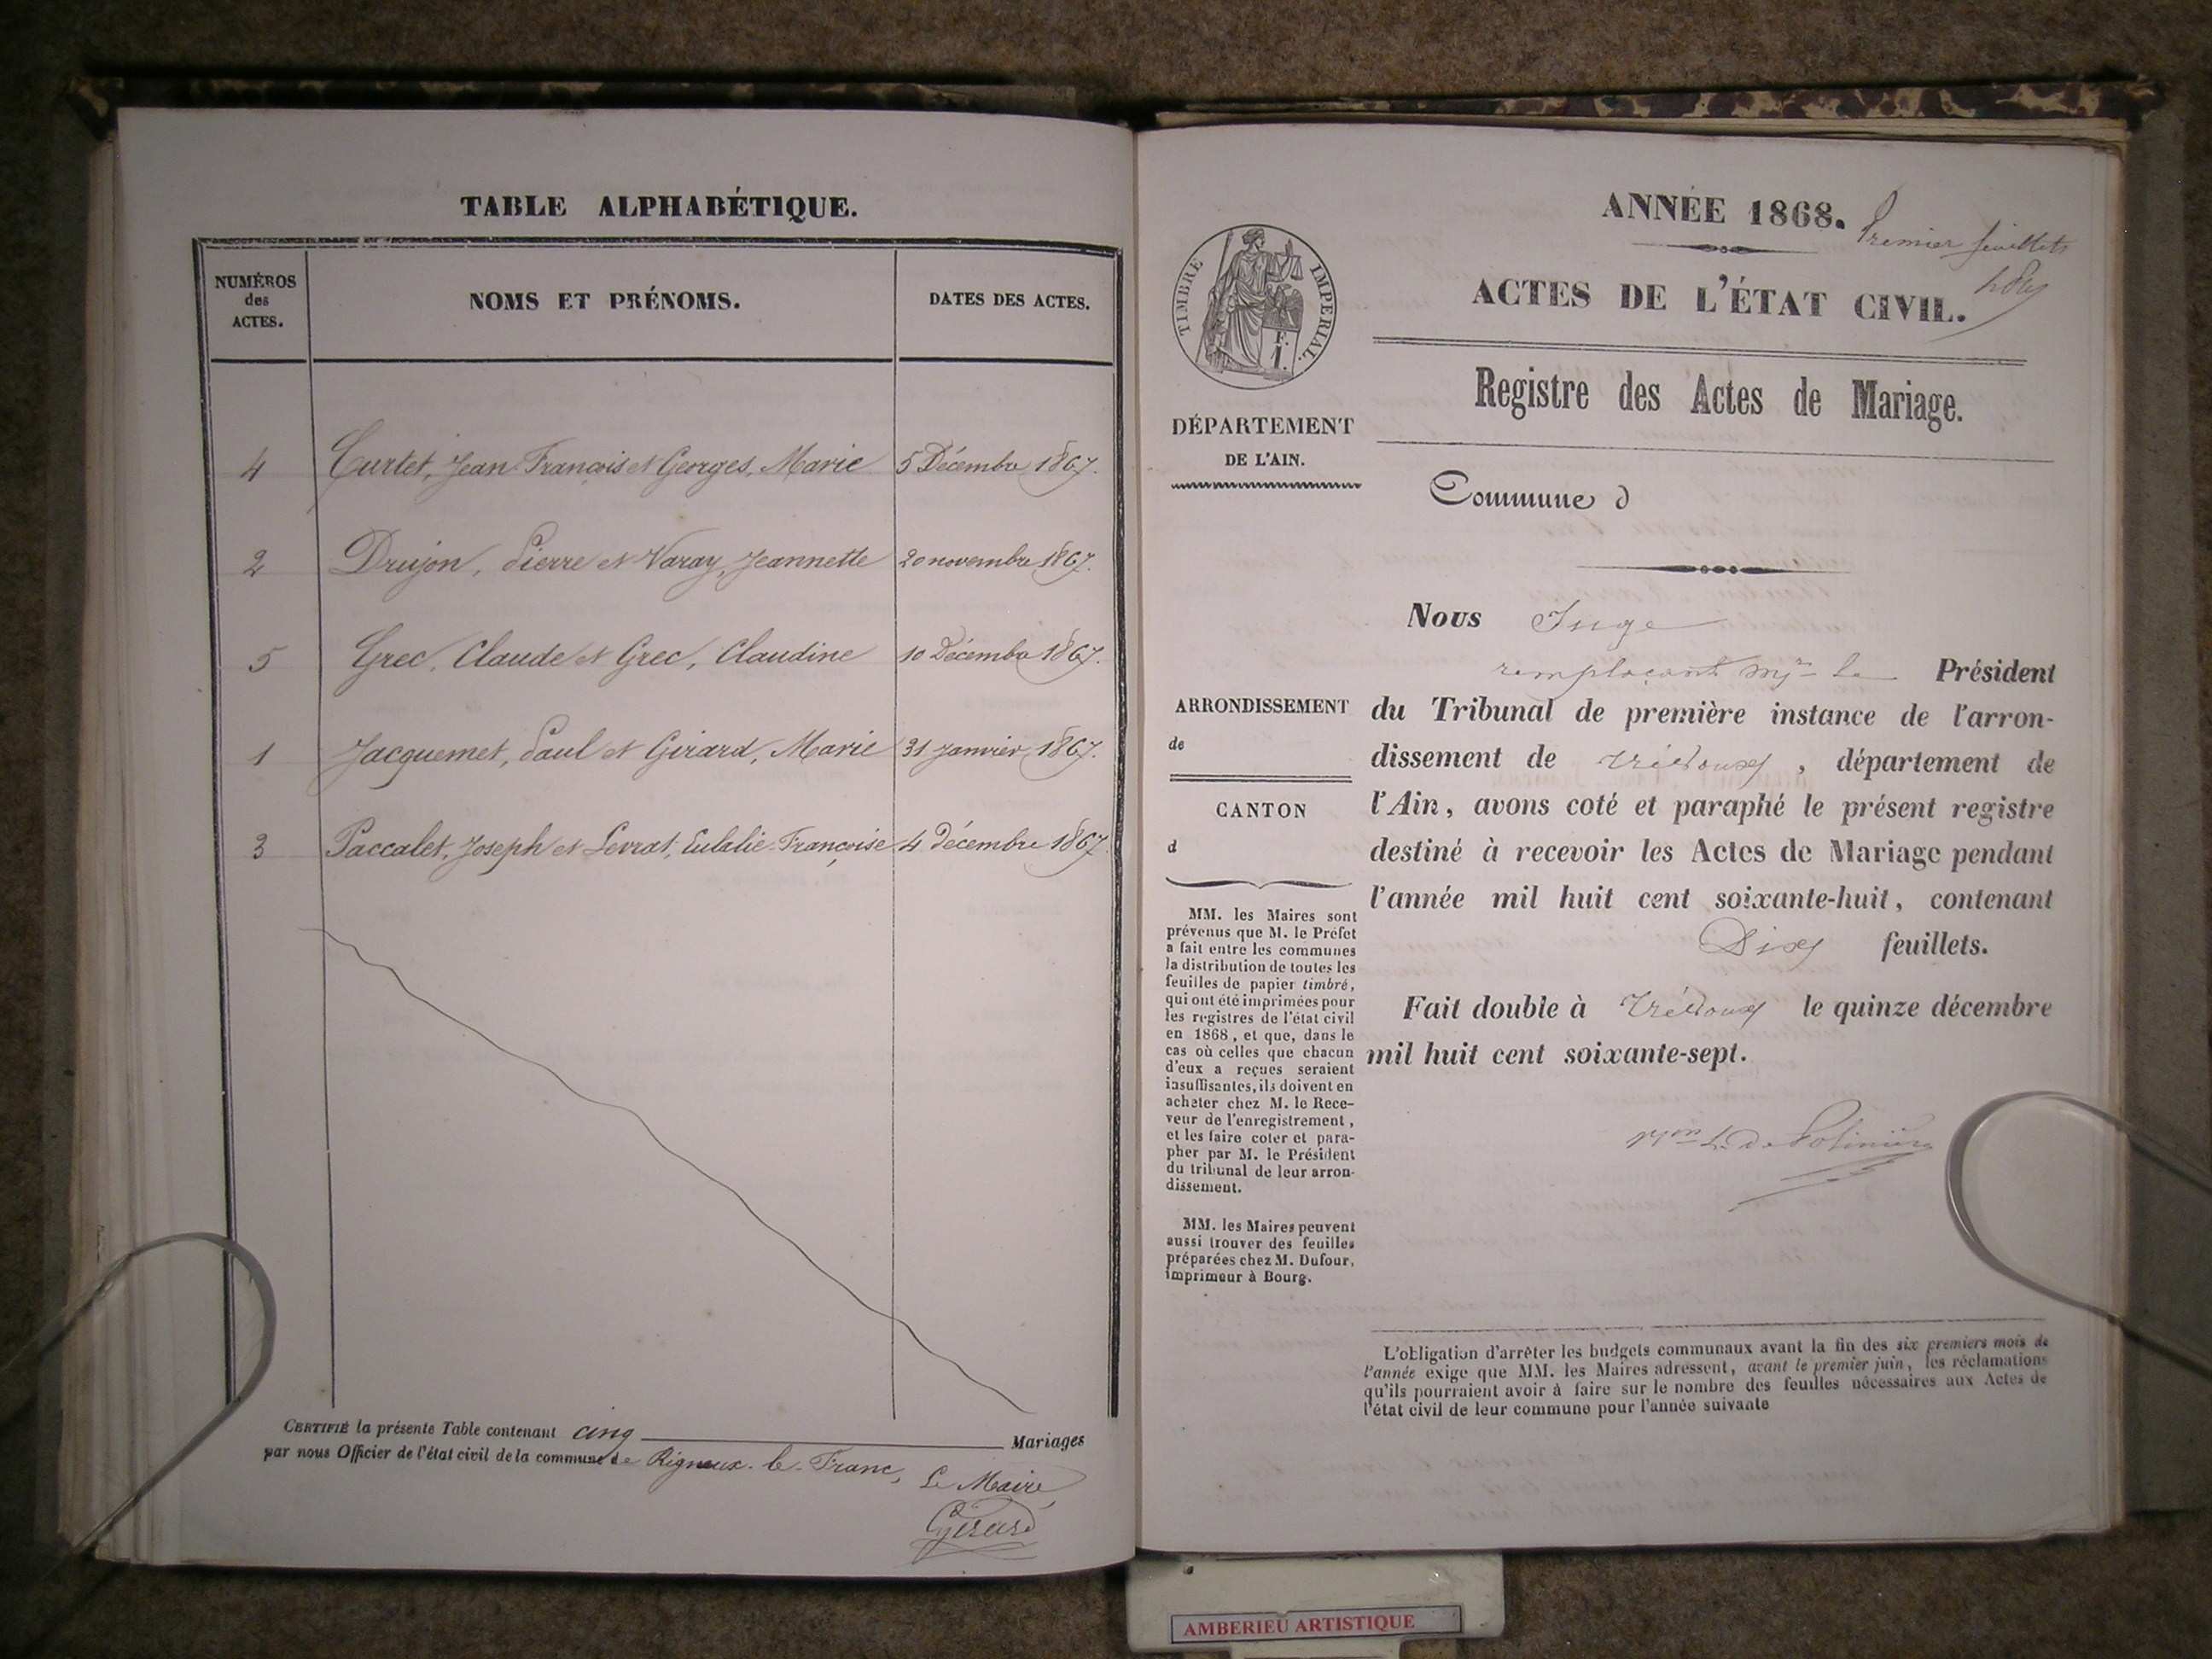 TABLE ALPHABÉTIQUE.
NUMÉROS des ACTES.
NOMS ET PRÉNOMS.
DATES DES ACTES.
4 Curtet, Jean François et Georges, Marie 5 Décembre 1867.
2 Drujon, Pierre et Varay, Jeannette 20 novembre 1867.
5 Grec, Claude et Grec, Claudine 10 Décembre 1867.
1 Jacquemet, Paul et Girard, Marie 31 janvier 1867.
3 Paccalet, Joseph et Levrat, Eulalie Françoise 4 Décembre 1867.
CERTIFIÉ la présente Table contenant cinq Mariages
par nous Officier de l'état civil de la commune de Rigneux-le-Franc,
Le Maire
Girard
ANNÉE 1868.
Premier feuillet
ACTES DE L'ÉTAT CIVIL.
TIMBRE IMPERIAL.
Registre des Actes de Mariage.
DÉPARTEMENT
DE L'AIN.
Commune d
Nous Juge
remplaçant Mr le Président
ARRONDISSEMENT
de
CANTON
d
du Tribunal de première instance de l'arron-
dissement de Trévoux, département de
l'Ain, avons coté et paraphé le présent registre
destiné à recevoir les Actes de Mariage pendant
l'année mil huit cent soixante-huit, contenant
Dix feuillets.
Fait double à Trévoux le quinze décembre
mil huit cent soixante-sept.
MM. les Maires sont
prévenus que M. le Préfet
a fait entre les communes
la distribution de toutes les
feuilles de papier timbré,
qui ont été imprimées pour
les registres de l'état civil
en 1868, et que, dans le
cas où celles que chacun
d'eux a reçues seraient
insuffisantes, ils doivent en
acheter chez M. le Rece-
veur de l'enregistrement,
et les faire coter et para-
pher par M. le Président
du tribunal de leur arron-
dissement.
MM. les Maires peuvent
aussi trouver des feuilles
préparées chez M. Dufour,
imprimeur à Bourg.
L'obligation d'arrêter les budgets communaux avant la fin des six premiers mois de
l'année exige que MM. les Maires adressent, avant le premier juin, les réclamations
qu'ils pourraient avoir à faire sur le nombre des feuilles nécessaires aux Actes de
l'état civil de leur commune pour l'année suivante
AMBERIEU ARTISTIQUE